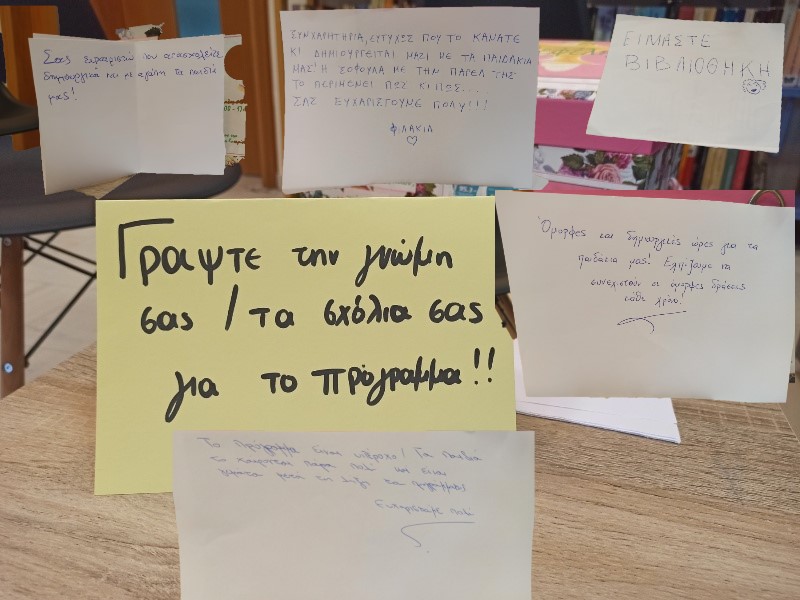 Σας ευχαριστώ που απασχολείτε
δημιουργικά και με αγάπη τα παιδιά
μας!
ΣΥΝΧΑΡΗΤΗΡΙΑ, ΕΥΤΥΧΩΣ ΠΟΥ ΤΟ ΚΑΝΑΤΕ
ΚΙ ΔΗΜΙΟΥΡΓΕΙΤΑΙ ΜΑΖΙ ΜΕ ΤΑ ΠΑΙΔΑΚΙΑ
ΜΑΣ! Η ΣΟΦΟΥΛΑ ΜΕ ΤΗΝ ΠΑΡΕΑ ΤΗΣ
ΤΟ ΠΕΡΙΜΕΝΕΙ ΠΩΣ ΚΙ ΠΩΣ....
ΣΑΣ ΕΥΧΑΡΙΣΤΟΥΜΕ ΠΟΛΥ!!!
ΦΙΛΑΚΙΑ
ΕΙΜΑΣΤΕ
ΒΙΒΛΙΟΘΗΚΗ
Γράψτε την γνώμη
σας / τα σχόλια σας
για το πρόγραμμα!!
Όμορφες και δημιουργικές ώρες για τα
παιδάκια μας! Ελπίζουμε να
συνεχιστούν οι όμορφες δράσεις
κάθε χρόνο!
Το πρόγραμμα είναι υπέροχο! Τα παιδιά
το χαίρονται πάρα πολύ και είναι
γεμάτα μετά τη λήξη του προγράμματος
Ευχαριστούμε πολύ